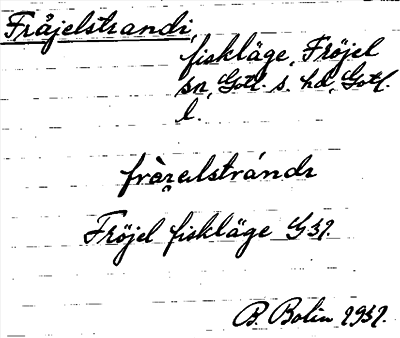 Fråjelstrandi,
fiskläge, Fröjel
sn, Gotl. s. hd, Gotl.
l.
Fröjel fiskläge G 37.
B. Bolin 1937.